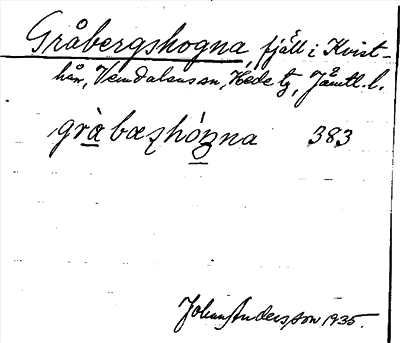 Gråbergshogna, fjäll i Kvist-
hån, Vemdalens sn, Hede tg, Jämtl. l.
grà bæʂhóŋna 383
Johan Andersson 1935.